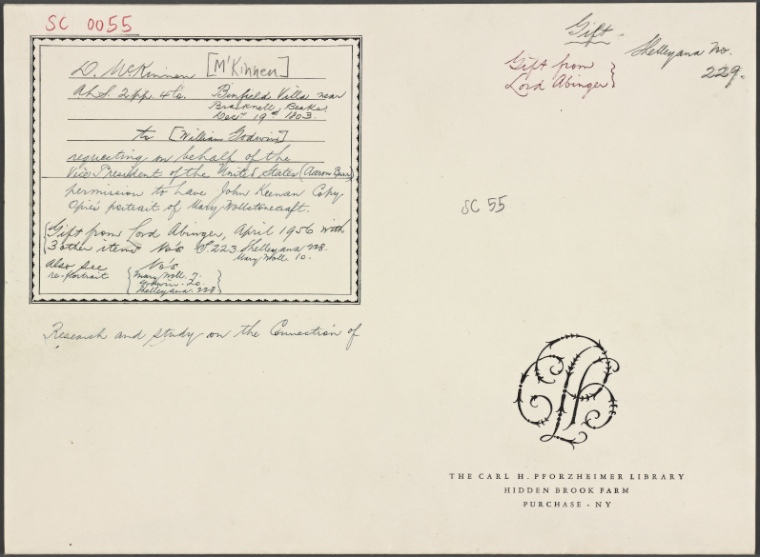 SC 0055
D. McKinnen [M'Kinnen]
A.L.S. 2pp. 4to. Binfield Villa near
Bracknell, Berks
Decr 19th 1803.
to [William Godwin]
requesting on behalf of the
Vice President of the United States (Aaron Burr)
permission to have John Keenan Copy
Opie's portrait of Mary Wollstonecraft.
{Gift from Lord Abinger, April 1956 with
3 other items No's S.223 Shelleyana 228.
Mary Woll. 10.
also see No's
re-Portrait {Mary Woll. 7.
Godwin - 20.
Shelleyana. 228}
Research and study on the Connection of
Gift -
Gift from
Lord Abinger}
Shelleyana No.
229.
SC 55
THE CARL H. PFORZHEIMER LIBRARY
HIDDEN BROOK FARM
PURCHASE - NY